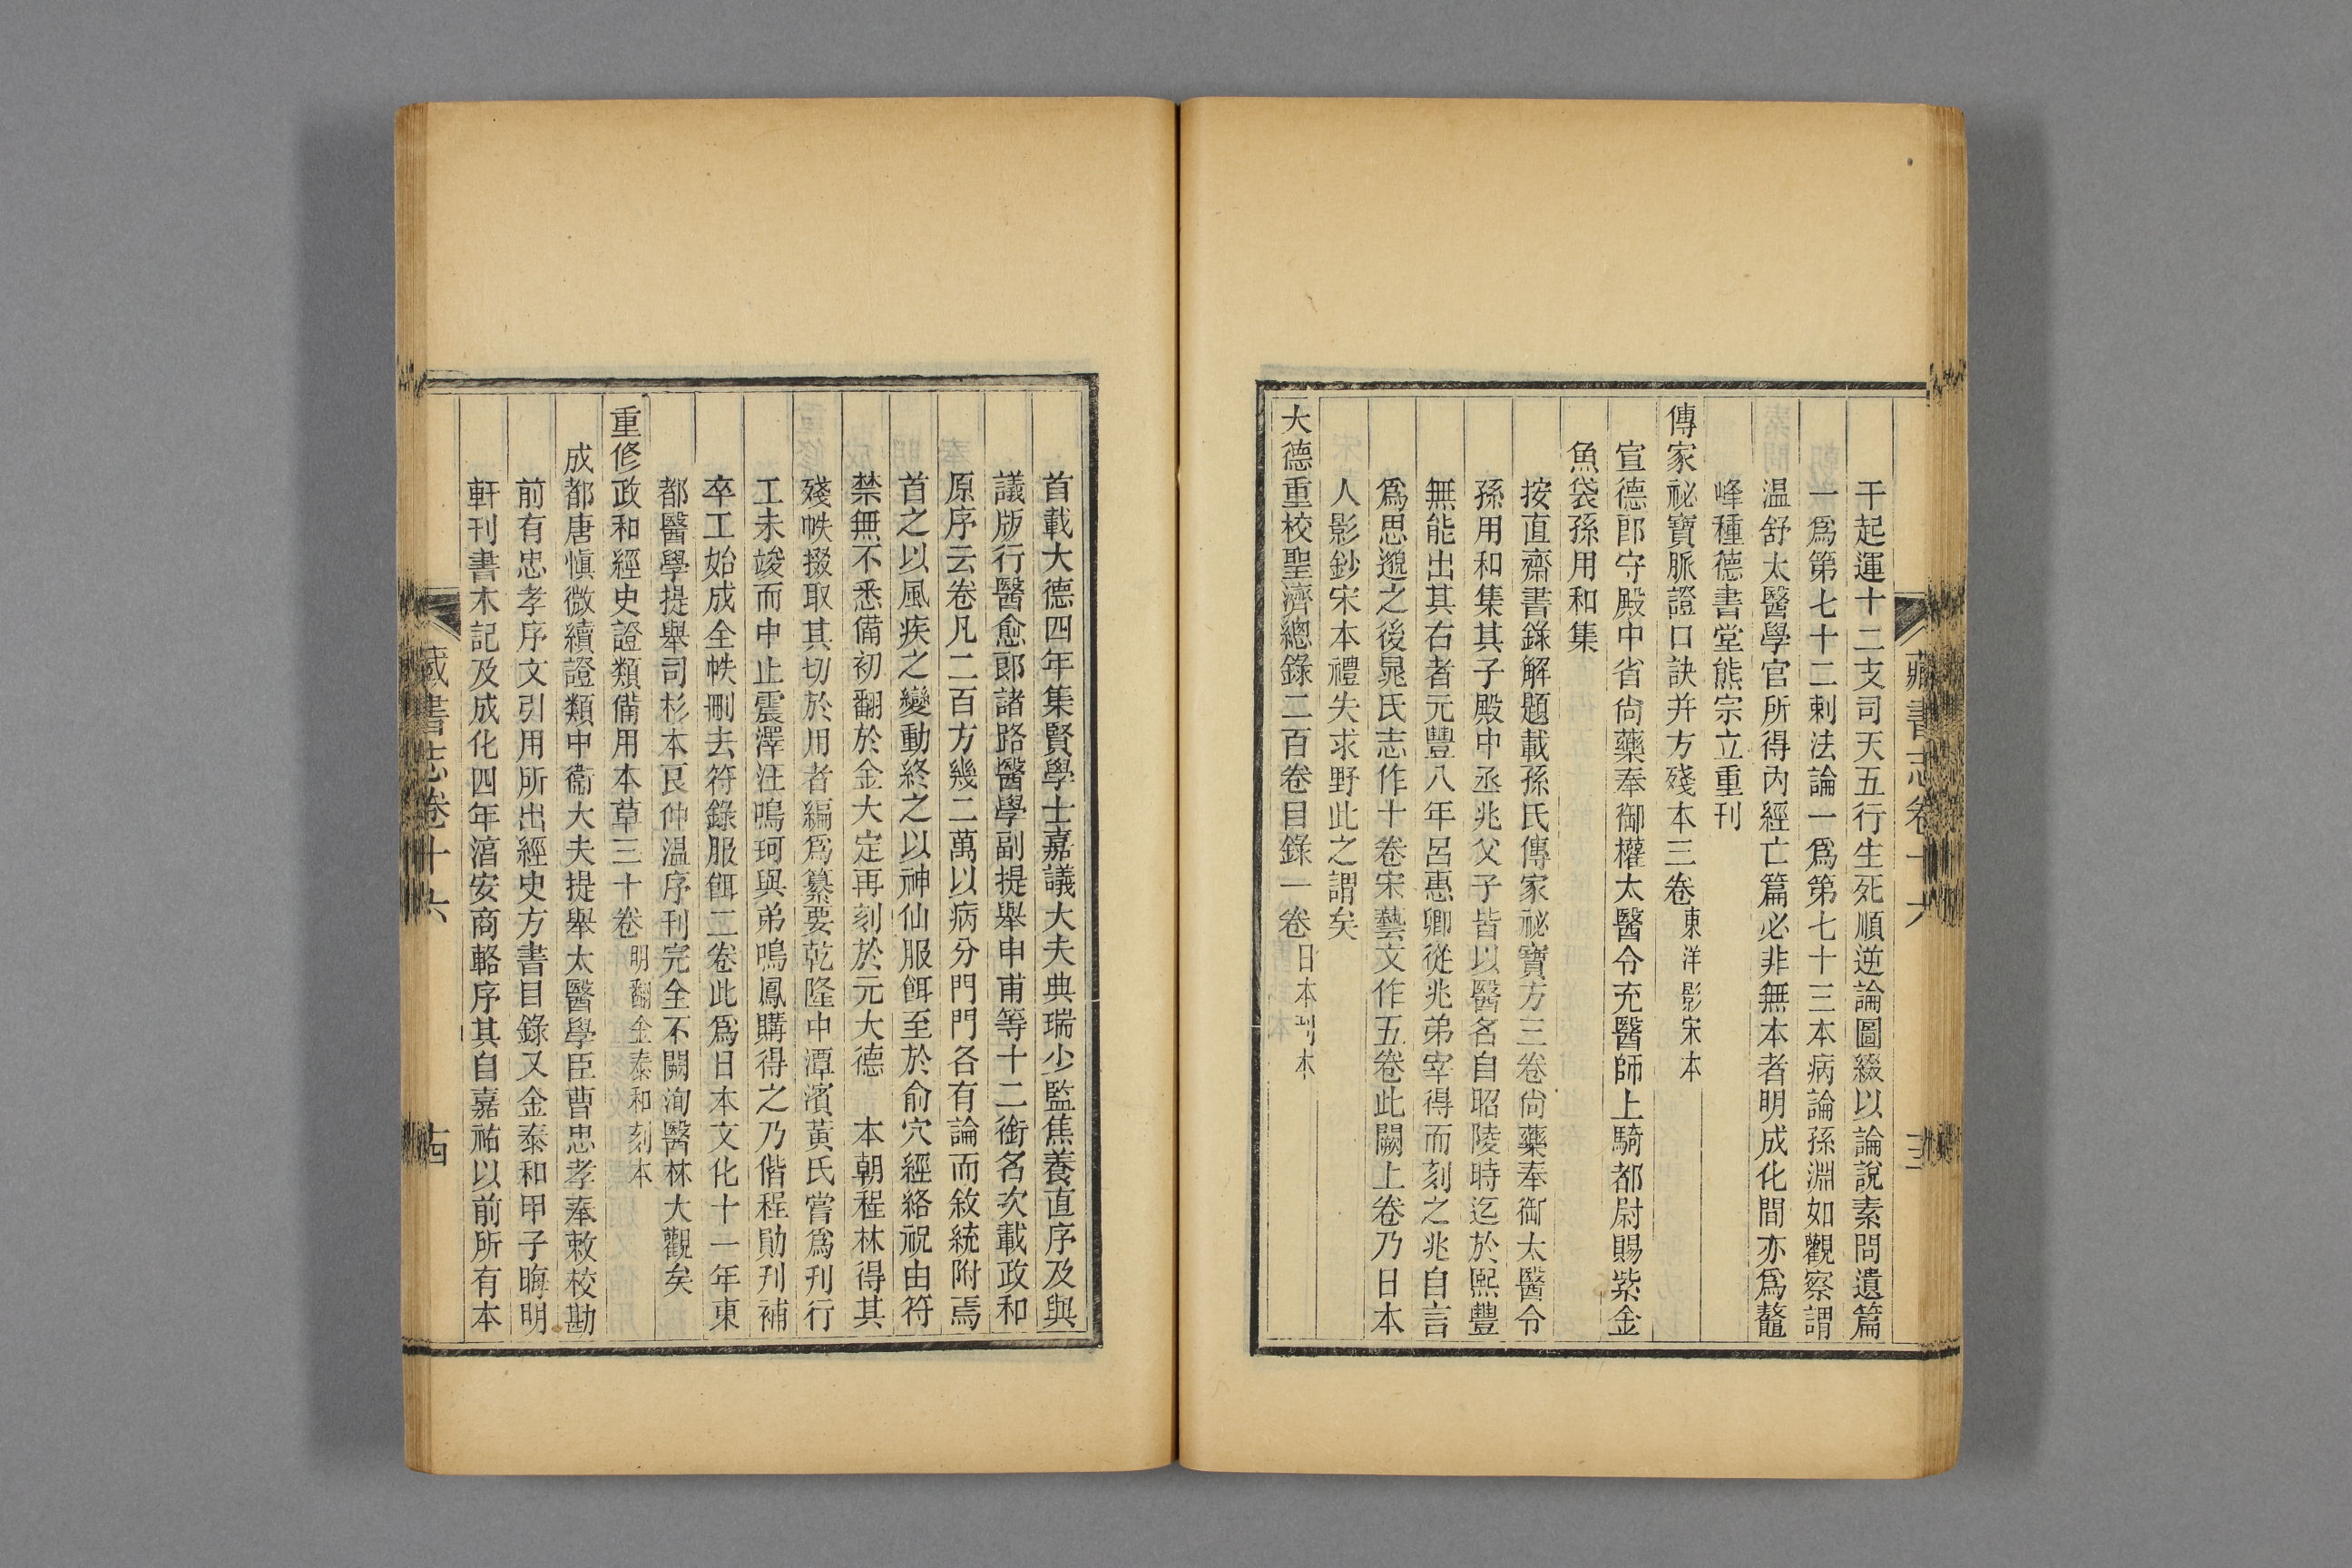 藏書志卷十六
干起運十二支司天五行生死順逆論圖綴以論說素問遺篇
一爲第七十二剌法論一爲第七十三本病論孫淵如觀察謂
温舒太醫學官所得內經亡篇必非無本者明成化間亦爲鼇
峰種德書堂熊宗立重刊
傳家祕寶脈證口訣并方殘本三卷東洋影宋本
宣德郎守殿中省尙藥奉御權太醫令充醫師上騎都尉賜紫金
魚袋孫用和集
按直齋書錄解題載孫氏傳家祕寶方三卷尙藥奉御太醫令
孫用和集其子殿中丞兆父子皆以醫名自昭陵時迄於熙豐
無能出其右者元豐八年呂惠卿從兆弟宰得而刻之兆自言
爲思邈之後晁氏志作十卷宋藝文作五卷此闕上卷乃日本
人影鈔宋本禮失求野此之謂矣
大德重校聖濟總錄二百卷目錄一卷日本刊本
首載大德四年集賢學士嘉議大夫典瑞少監焦養直序及與
議版行醫愈郎諸路醫學副提舉申甫等十二銜名次載政和
原序云卷凡二百方幾二萬以病分門門各有論而敘統附焉
首之以風疾之變動終之以神仙服餌至於俞穴經絡祝由符
禁無不悉備初翻於金大定再刻於元大德　本朝程林得其
殘帙掇取其切於用者編爲纂要乾隆中潭濱黃氏嘗爲刊行
工未竣而中止震澤汪鳴珂與弟鳴鳳購得之乃偕程勛刊補
卒工始成全帙刪去符錄服餌二卷此爲日本文化十一年東
都醫學提舉司杉本良仲温序刊完全不闕洵醫林大觀矣
重修政和經史證類備用本草三十卷明翻金泰和刻本
成都唐愼微續證類中衞大夫提舉太醫學臣曹忠孝奉敕校勘
前有忠孝序文引用所出經史方書目錄又金泰和甲子晦明
軒刊書木記及成化四年湻安商輅序其自嘉祐以前所有本
藏書志卷十六